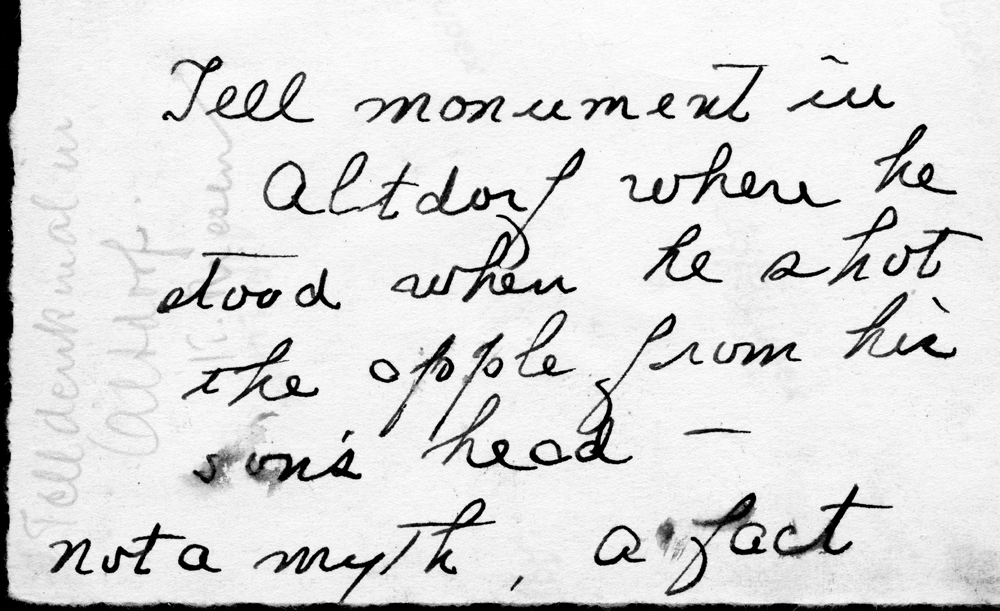 Tell monument in
Altdorf where he
stood when he shot
the apple from his
son's head —
not a myth, a fact
Telldenkmal in
Altdorf.